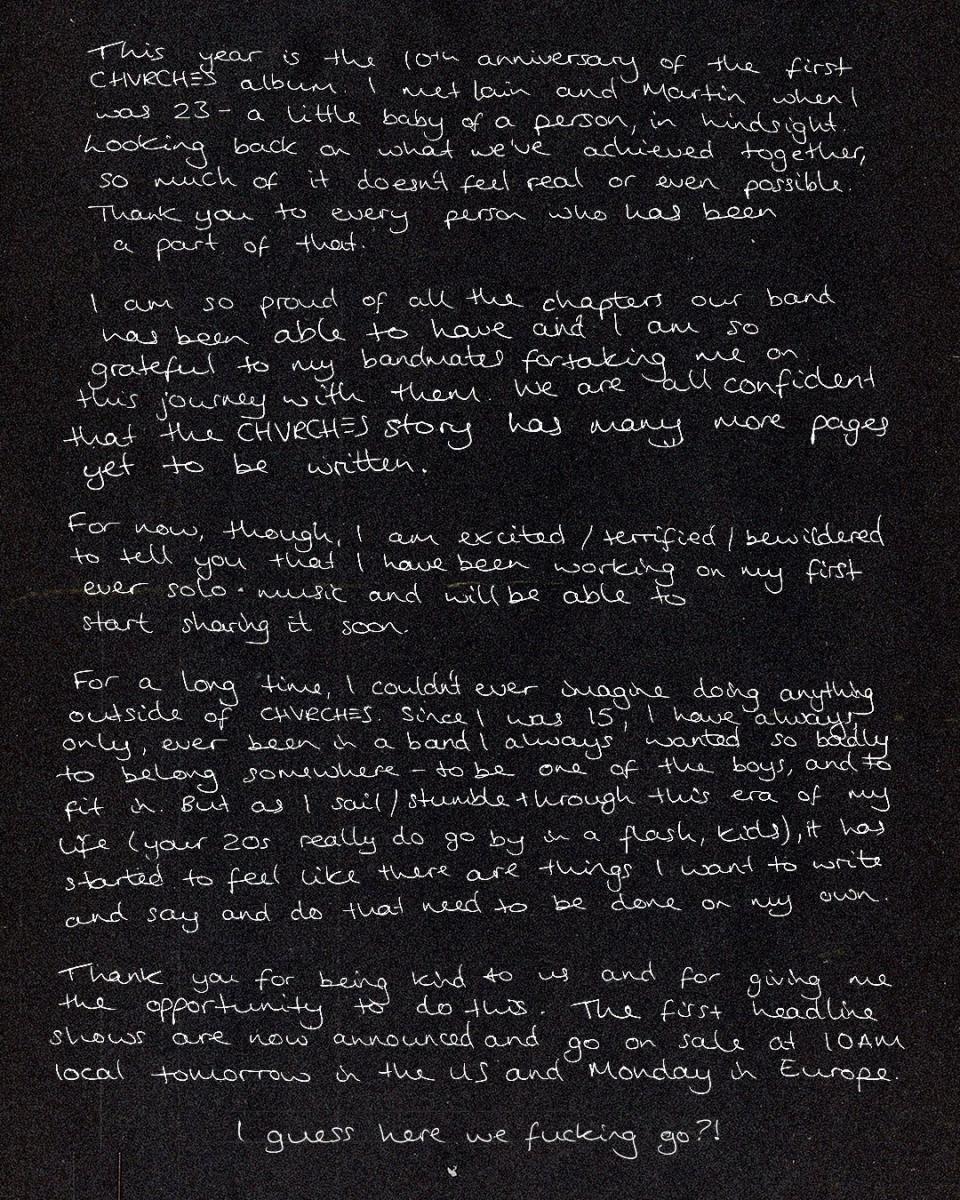 This year is the 10th anniversary of the first
CHVRCHES album. I met Iain and Martin when I
was 23 - a little baby of a person, in hindsight.
Looking back on what we've achieved together,
so much of it doesn't feel real or even possible.
Thank you to every person who has been
a part of that.
I am so proud of all the chapters our band
has been able to have and I am so
grateful to my bandmates for taking me on
this journey with them. We are all confident
that the CHVRCHES story has many more pages
yet to be written.
For now, though, I am excited / terrified / bewildered
to tell you that I have been working on my first
ever solo music and will be able to
start sharing it soon.
For a long time, I couldn't ever imagine doing anything
outside of CHVRCHES. Since I was 15, I have always,
only, ever been in a band. I always wanted so badly
to belong somewhere - to be one of the boys, and to
fit in. But as I sail / stumble through this era of my
life (your 20s really do go by in a flash, kids), it has
started to feel like there are things I want to write
and say and do that need to be done on my own.
Thank you for being kind to us and for giving me
the opportunity to do this. The first headline
shows are now announced and go on sale at 10AM
local tomorrow in the US and Monday in Europe.
I guess here we fucking go?!